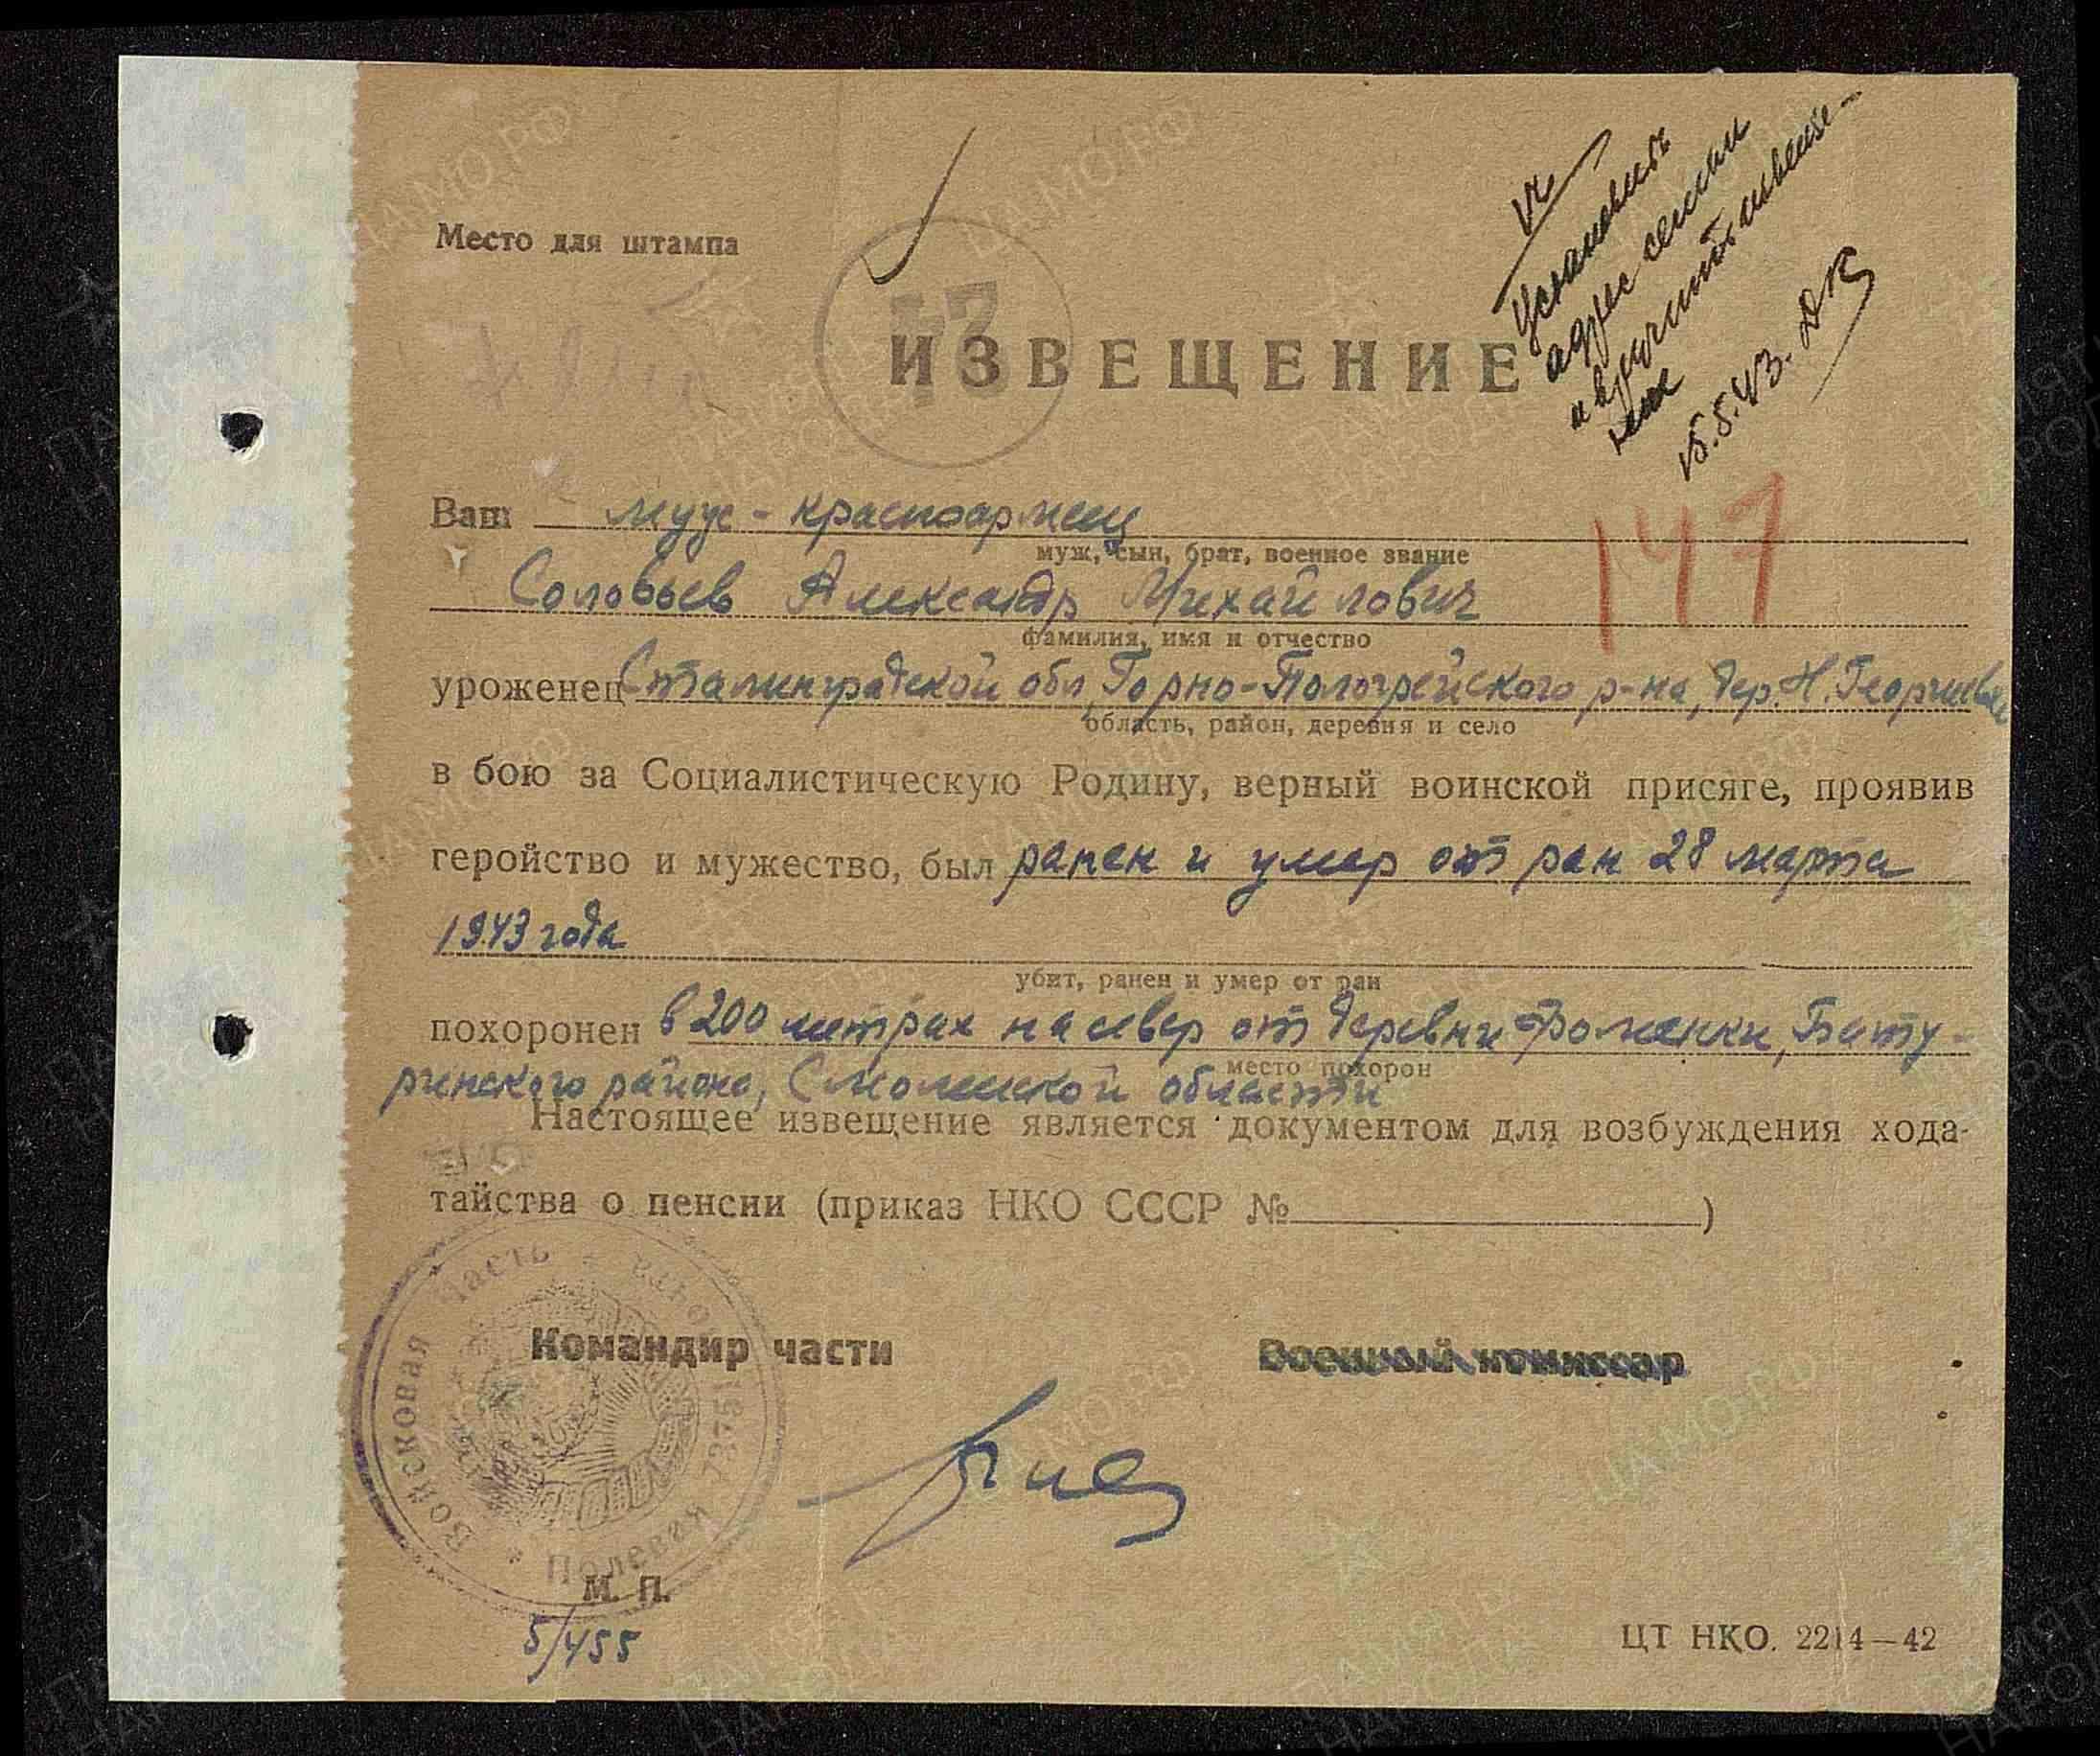 Место для штампа
47
ИЗВЕЩЕНИЕ
Установить
адрес семьи
и вручить извеще-
ние
15.5.43.
147
Ваш муж - красноармеец
муж, сын, брат, военное звание
Соловьев Александр Михайлович
фамилия, имя и отчество
уроженец Сталинградской обл, Горно-Пологрейского р-на, дер. Н. Георгиевка
область, район, деревня и село
в бою за Социалистическую Родину, верный воинской присяге, проявив
геройство и мужество, был ранен и умер от ран 28 марта
1943 года
убит, ранен и умер от ран
похоронен в 200 метрах на север от деревни Фоменки, Бату-
место похорон
ринского района, Смоленской области
Настоящее извещение является документом для возбуждения хода-
тайства о пенсии (приказ НКО СССР № )
Командир части Военный комиссар
Войсковая часть Полевая
М. П.
5/455
ЦТ НКО. 2214—42
ПАМЯТЬ НАРОДА
ЦАМО.РФ